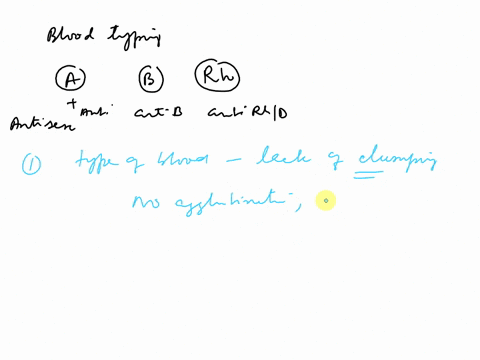 Blood typing
A B Rh
+
Antisera Anti ant-B anti Rh/D
① type of blood - lack of clumping
No agglutinati,